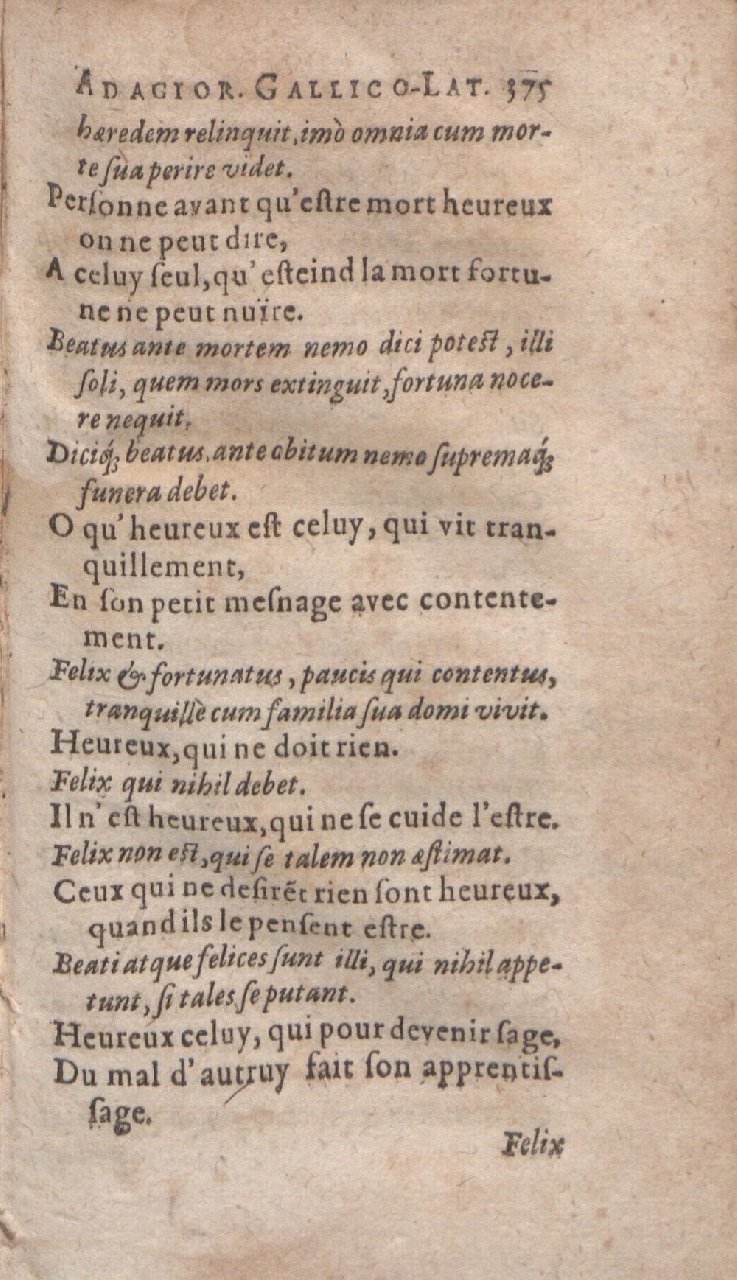 ADAGIOR. GALLICO-LAT. 375
hæredem relinquit, imò omnia cum mor-
te ſua perire videt.
Perſonne avant qu'eſtre mort heureux
on ne peut dire,
A celuy ſeul, qu'eſteind la mort fortu-
ne ne peut nuïre.
Beatus ante mortem nemo dici poteſt, illi
ſoli, quem mors extinguit, fortuna noce-
re nequit.
Diciq́ꝫ beatus, ante obitum nemo ſupremaq́ꝫ
funera debet.
O qu'heureux eſt celuy, qui vit tran-
quillement,
En ſon petit meſnage avec contente-
ment.
Felix & fortunatus, paucis qui contentus,
tranquillè cum familia ſua domi vivit.
Heureux, qui ne doit rien.
Felix qui nihil debet.
Il n'eſt heureux, qui ne ſe cuide l'eſtre.
Felix non eſt, qui ſe talem non æſtimat.
Ceux qui ne deſirẽt rien ſont heureux,
quand ils le penſent eſtre.
Beati atque felices ſunt illi, qui nihil appe-
tunt, ſi tales ſe putant.
Heureux celuy, qui pour devenir ſage,
Du mal d'autruy fait ſon apprentiſ-
ſage.
Felix